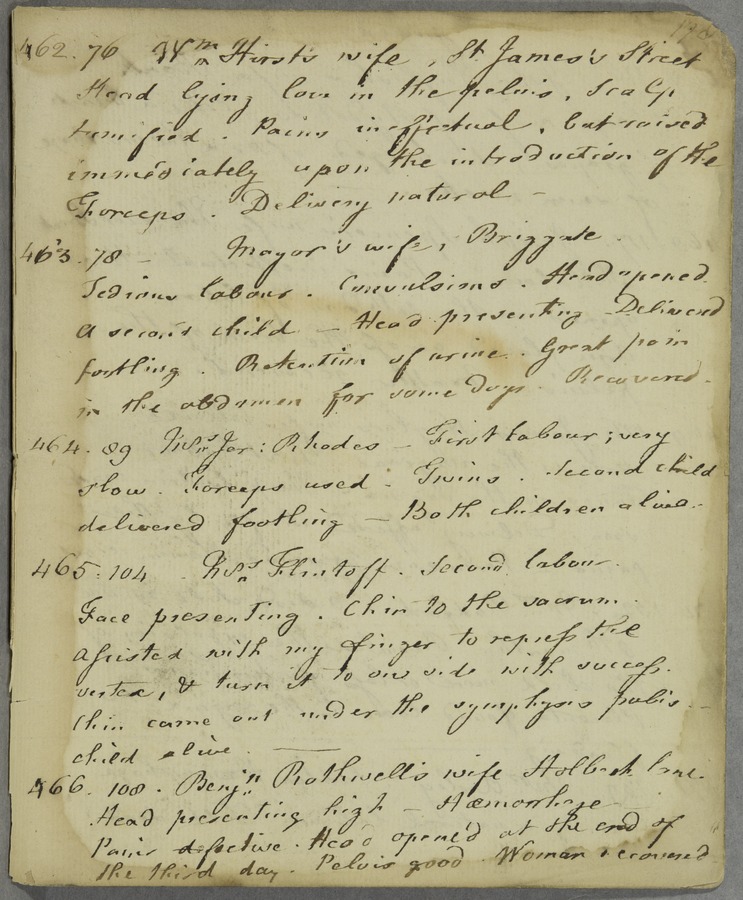 462. 76 Wm Hirst's wife, St. James's Street
Head lying low in the pelvis. Scalp
tumified. Pains ineffectual, but raised
immediately upon the introduction of the
Forceps. Delivery natural -
463. 78 - Mayor's wife, Briggate.
Tedious labour. Convulsions. Head opened.
A second child - Head presenting Delivered
footling. Retention of urine. Great pain
in the abdomen for some days. Recovered.
464. 89 Mrs Jer: Rhodes - First labour; very
slow. Forceps used. Twins. Second child
delivered footling - Both children alive.
465. 104 . Mrs Flintoff. Second labour.
Face presenting. Chin to the sacrum.
Assisted with my finger to repress the
vertex, & turn it to one side with success.
Chin came out under the symphysis pubis -
child alive.
466. 108. Benjn Rothwell's wife Holbeck lane.
Head presenting high - Hæmorrhage
Pains defective. Head open'd at the end of
the third day. Pelvis good. Woman recovered